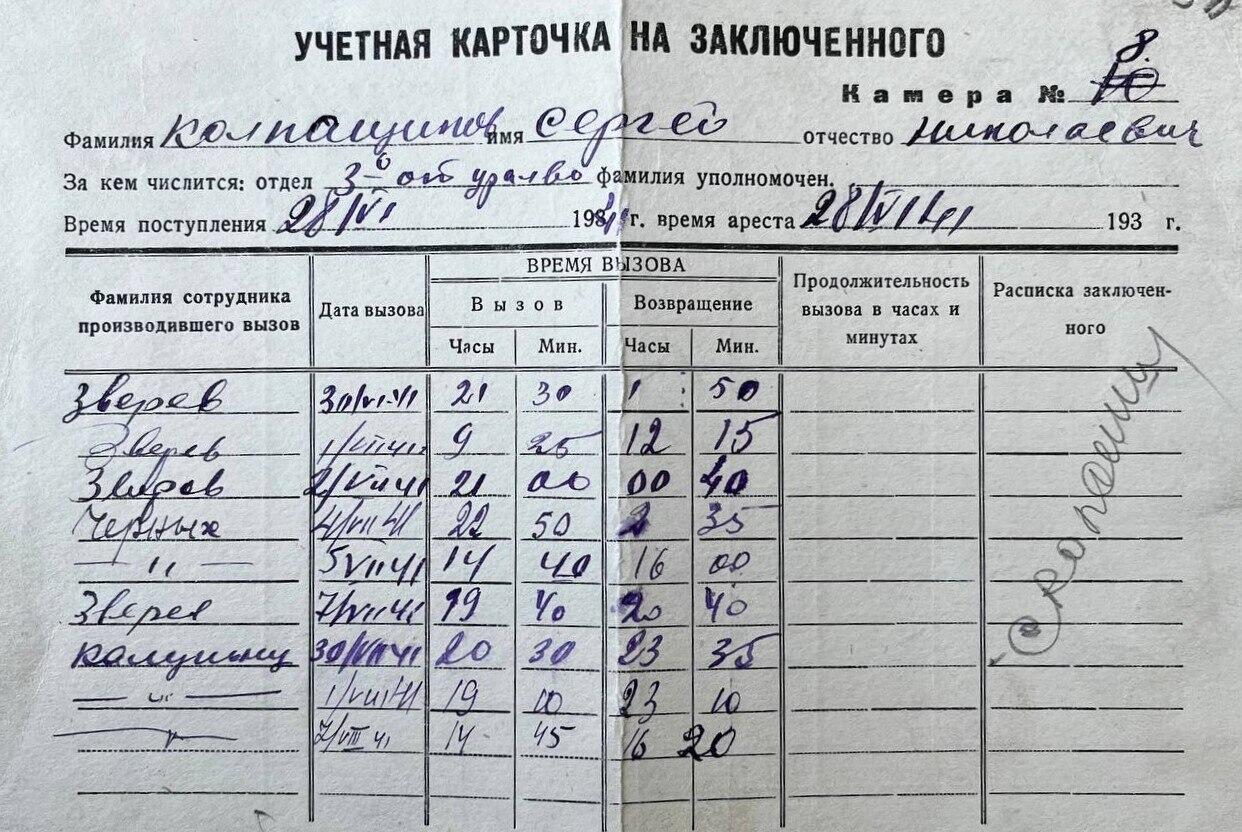 УЧЕТНАЯ КАРТОЧКА НА ЗАКЛЮЧЕННОГО
Камера № 10 8
Фамилия Колпащиков имя Сергей отчество Николаевич
За кем числится: отдел 3-й от уралво фамилия уполномочен.
Время поступления 28/VI 1941 г. время ареста 28/VI 41 193 г.
Фамилия сотрудника производившего вызов Дата вызова ВРЕМЯ ВЫЗОВА Продолжительность вызова в часах и минутах Расписка заключенного
Вызов Возвращение
Часы Мин. Часы Мин.
Зверев 30/VI-41 21 30 1 50
Зверев 1/VII 41 9 25 12 15
Зверев 2/VII 41 21 00 00 40
Черных 4/VII 41 22 50 2 35
— " — 5 VII 41 14 40 16 00
Зверев 7/VII 41 19 40 20 40
30/VII 41 20 30 23 35
— " — 1/VIII 41 19 10 23 10
— " — 7/VIII 41 14 45 16 20